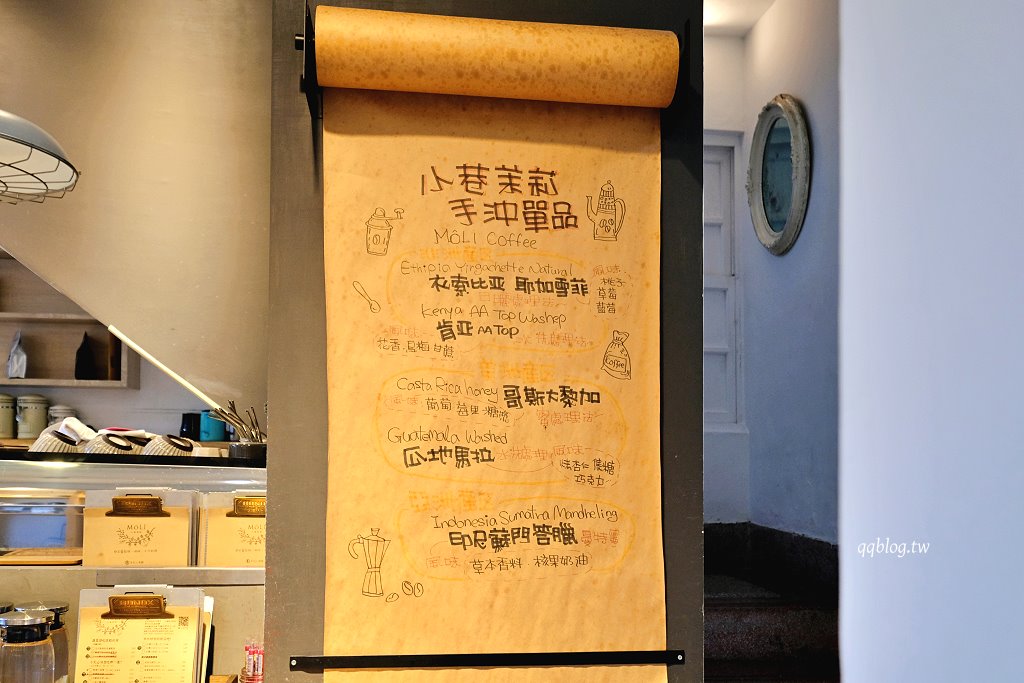 小巷茉莉
手沖單品
MôLI Coffee
Ethiopia Yirgachette Natural
衣索比亞 耶加雪菲
日曬處理法
風味:
桃子
草莓
藍莓
Kenya AA Top Washep
肯亞 AA TOP
水洗處理法
風味
花香·烏梅·甘蔗
Costa Rica honey 哥斯大黎加
風味 葡萄·莓果·糖漿
蜜處理法
Guatemala Washed
瓜地馬拉
風味
焦糖
巧克力
Indonesia Sumatra Mandheling
印尼蘇門答臘 曼特寧
風味 草本香料·核果奶油
Coffee
MôLI
qqblog.tw